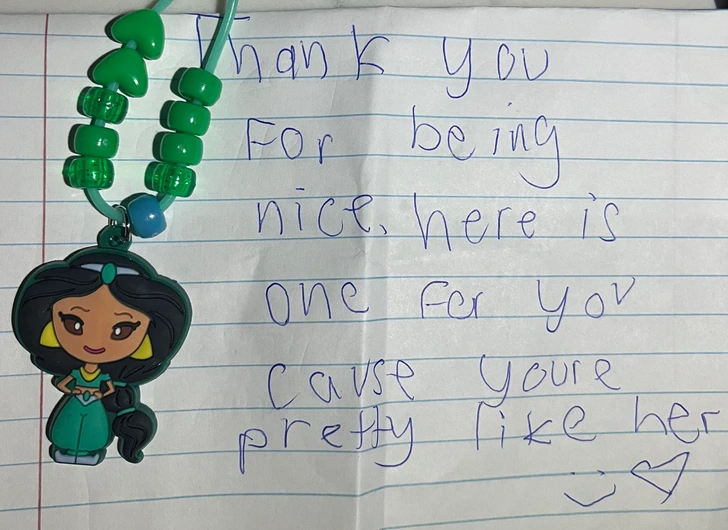 Thank you
For being
nice, here is
one for you
cause youre
pretty like her